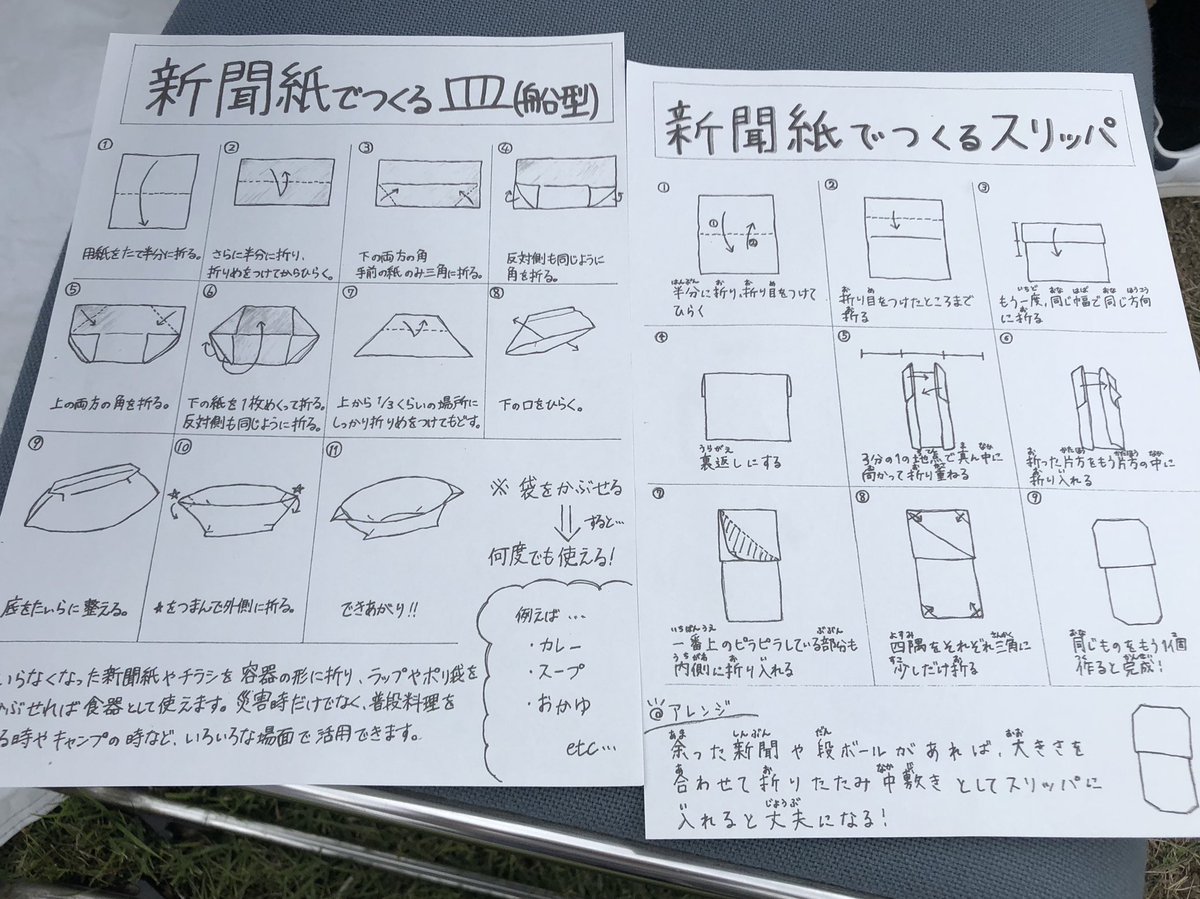 新聞紙でつくる皿(船型)
①
用紙をたて半分に折る。
②
さらに半分に折り、
折りめをつけてからひらく。
③
下の両方の角
手前の紙のみ三角に折る。
④
反対側も同じように
角を折る。
⑤
上の両方の角を折る。
⑥
下の紙を1枚めくって折る。
反対側も同じように折る。
⑦
上から1/3くらいの場所に
しっかり折りめをつけてもどす。
⑧
下の口をひらく。
⑨
底をたいらに整える。
⑩
★をつまんで外側に折る。
⑪
できあがり!!
※袋をかぶせる
すると…
何度でも使える!
例えば…
・カレー
・スープ
・おかゆ
etc…
いらなくなった新聞紙やチラシを容器の形に折り、ラップやポリ袋を
かぶせれば食器として使えます。災害時だけでなく、普段料理を
る時やキャンプの時など、いろいろな場面で活用できます。
新聞紙でつくるスリッパ
①
①
②
半分に折り、折り目をつけて
ひらく
②
折り目をつけたところまで
折る
③
もう一度、同じ幅で同じ方向
に折る
④
裏返しにする
⑤
3分の1の地点で真ん中に
向かって折り重ねる
⑥
折った片方をもう片方の中に
折り入れる
⑦
一番上のピラピラしている部分も
内側に折り入れる
⑧
四隅をそれぞれ三角に
少しだけ折る
⑨
同じものをもう1個
作ると完成!
◎アレンジ
余った新聞や段ボールがあれば、大きさを
合わせて折りたたみ中敷きとしてスリッパに
入れると丈夫になる!